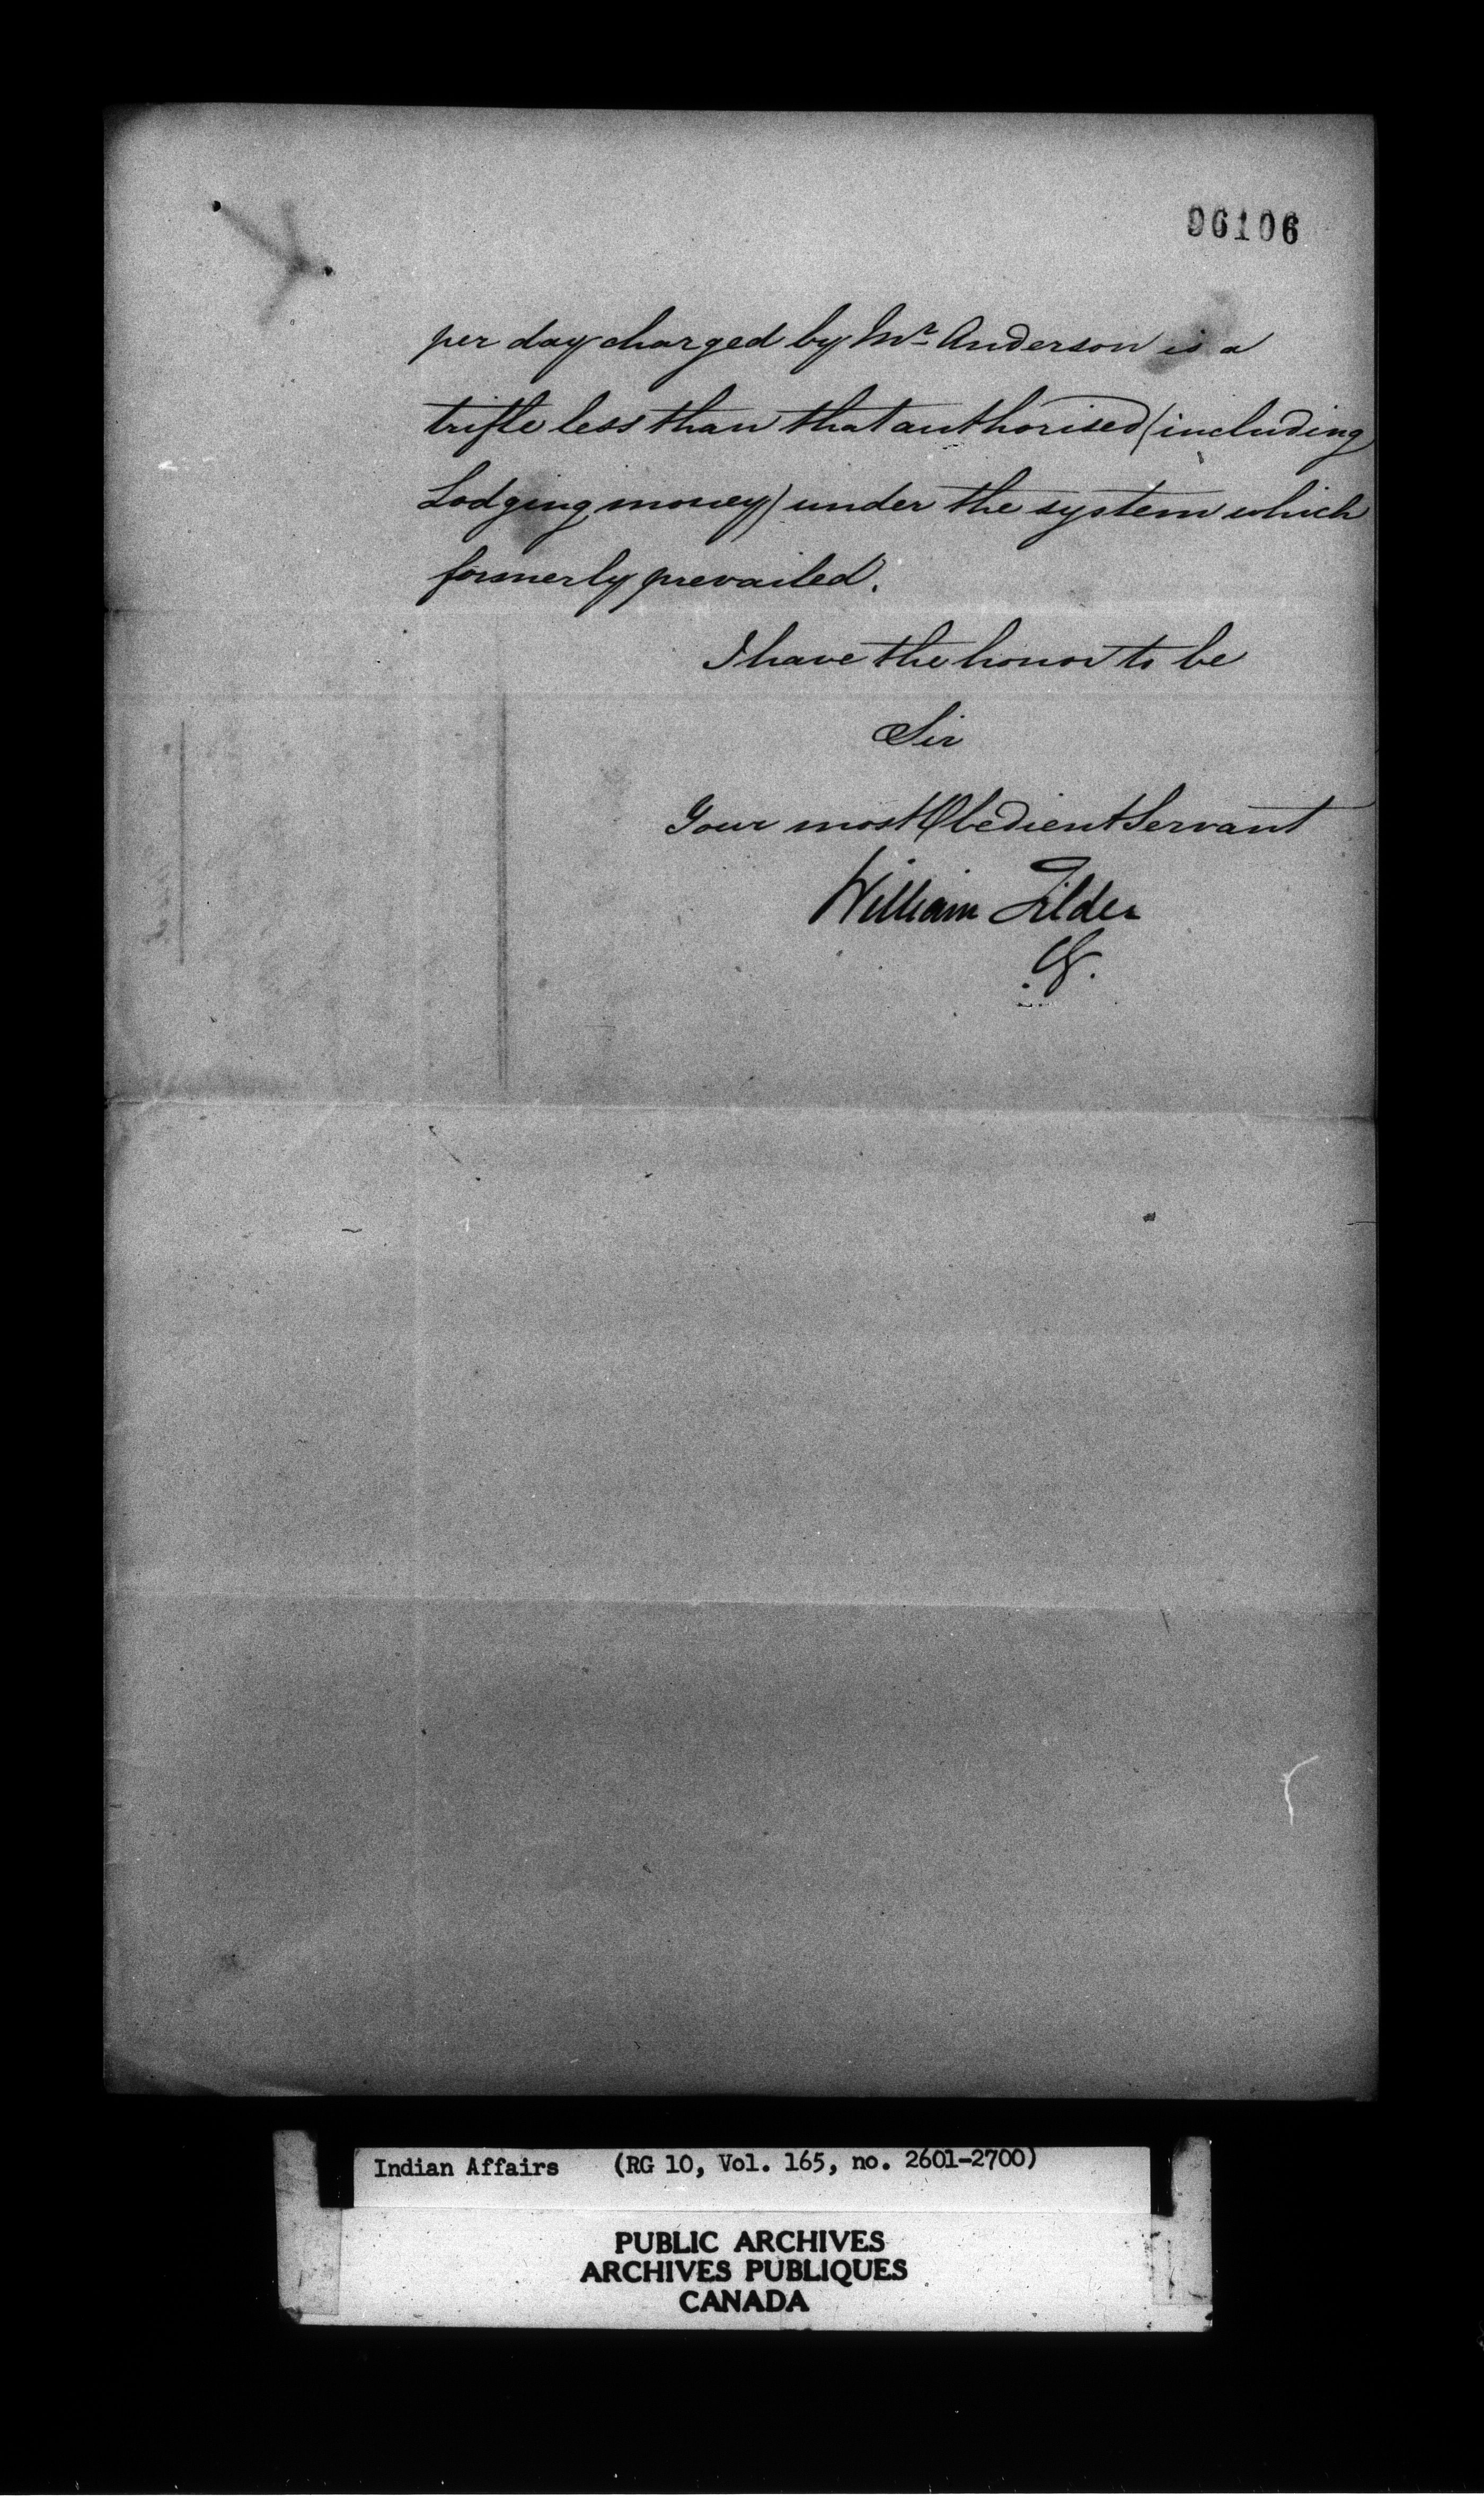 96106
per day charged by Mr. Anderson is a
trifle less than that authorised (including
Lodging money) under the system which
formerly prevailed.
I have the honor to be
Sir
Your most Obedient Servant
William Filder
CG.
Indian Affairs (RG 10, Vol. 165, no. 2601-2700)
PUBLIC ARCHIVES
ARCHIVES PUBLIQUES
CANADA